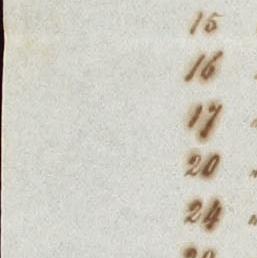 15
16
17
20
24